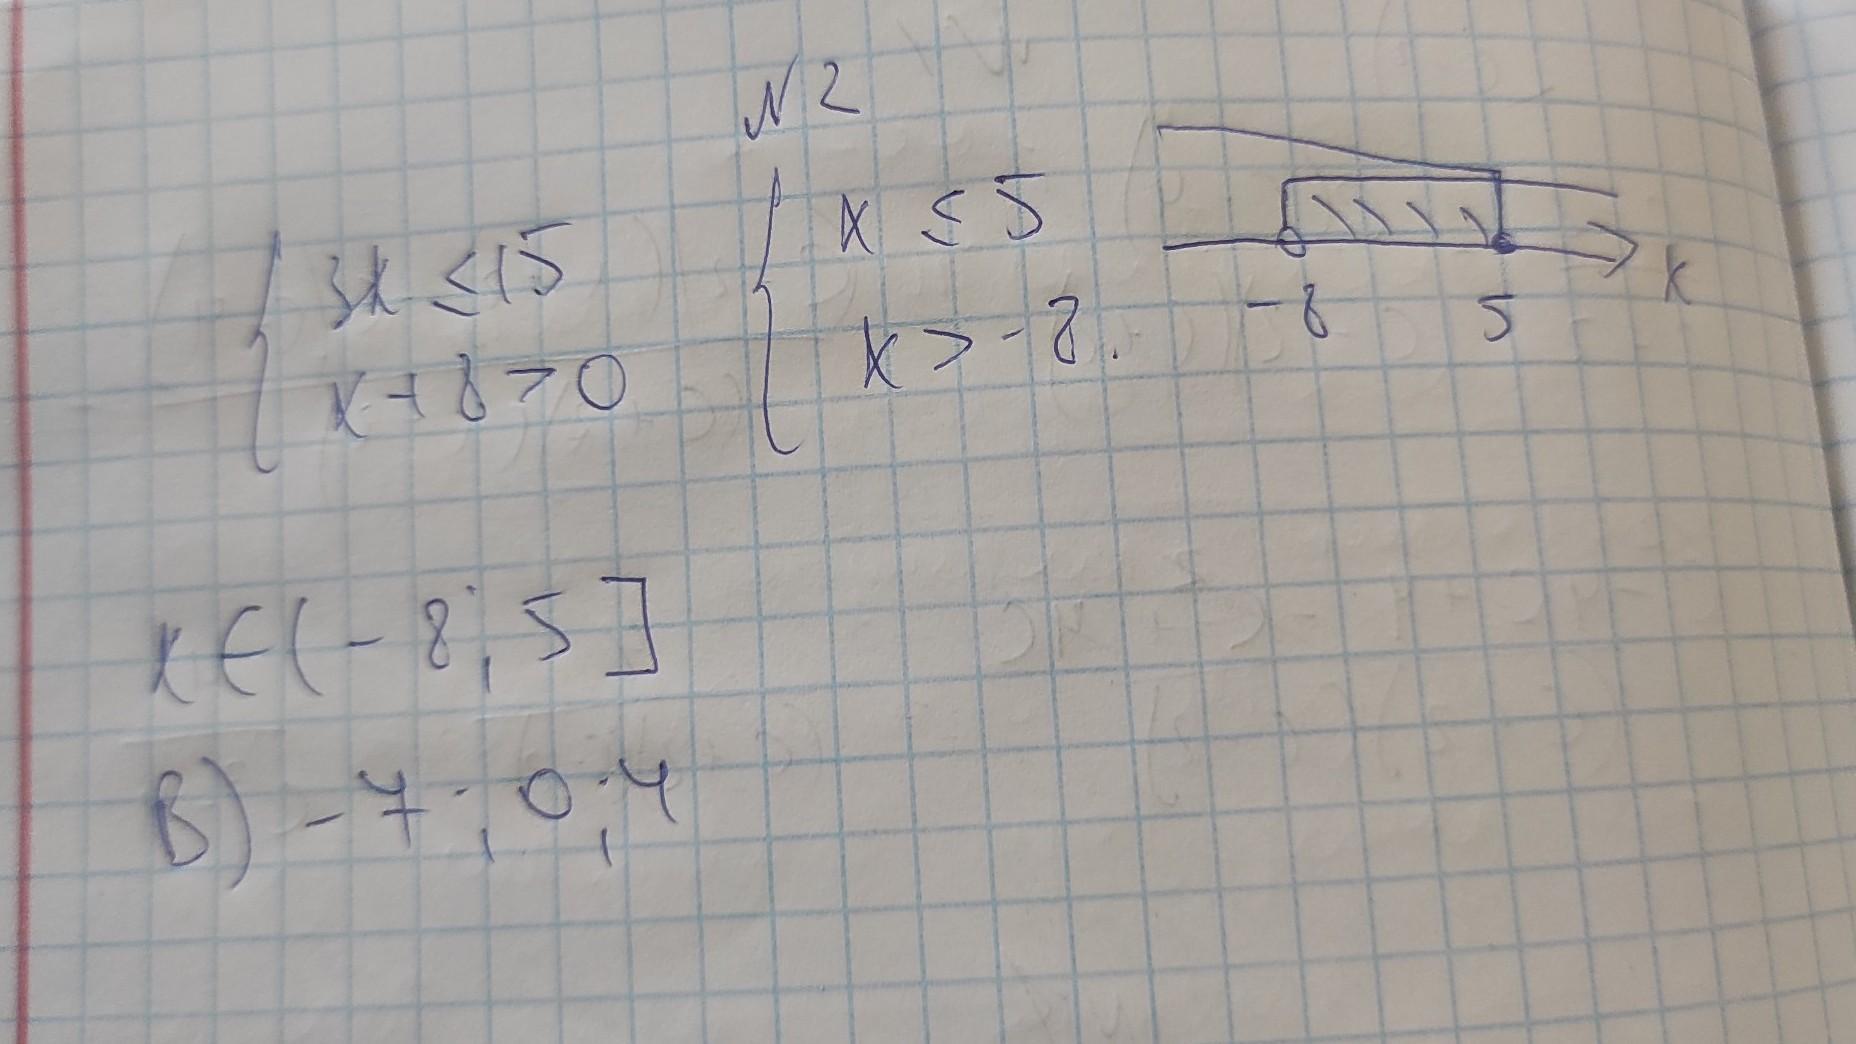 №2
{ 3x ≤ 15
x + 8 > 0
{ x ≤ 5
x > -8.
-8 5 x
x ∈ (-8; 5]
В) -7; 0; 4